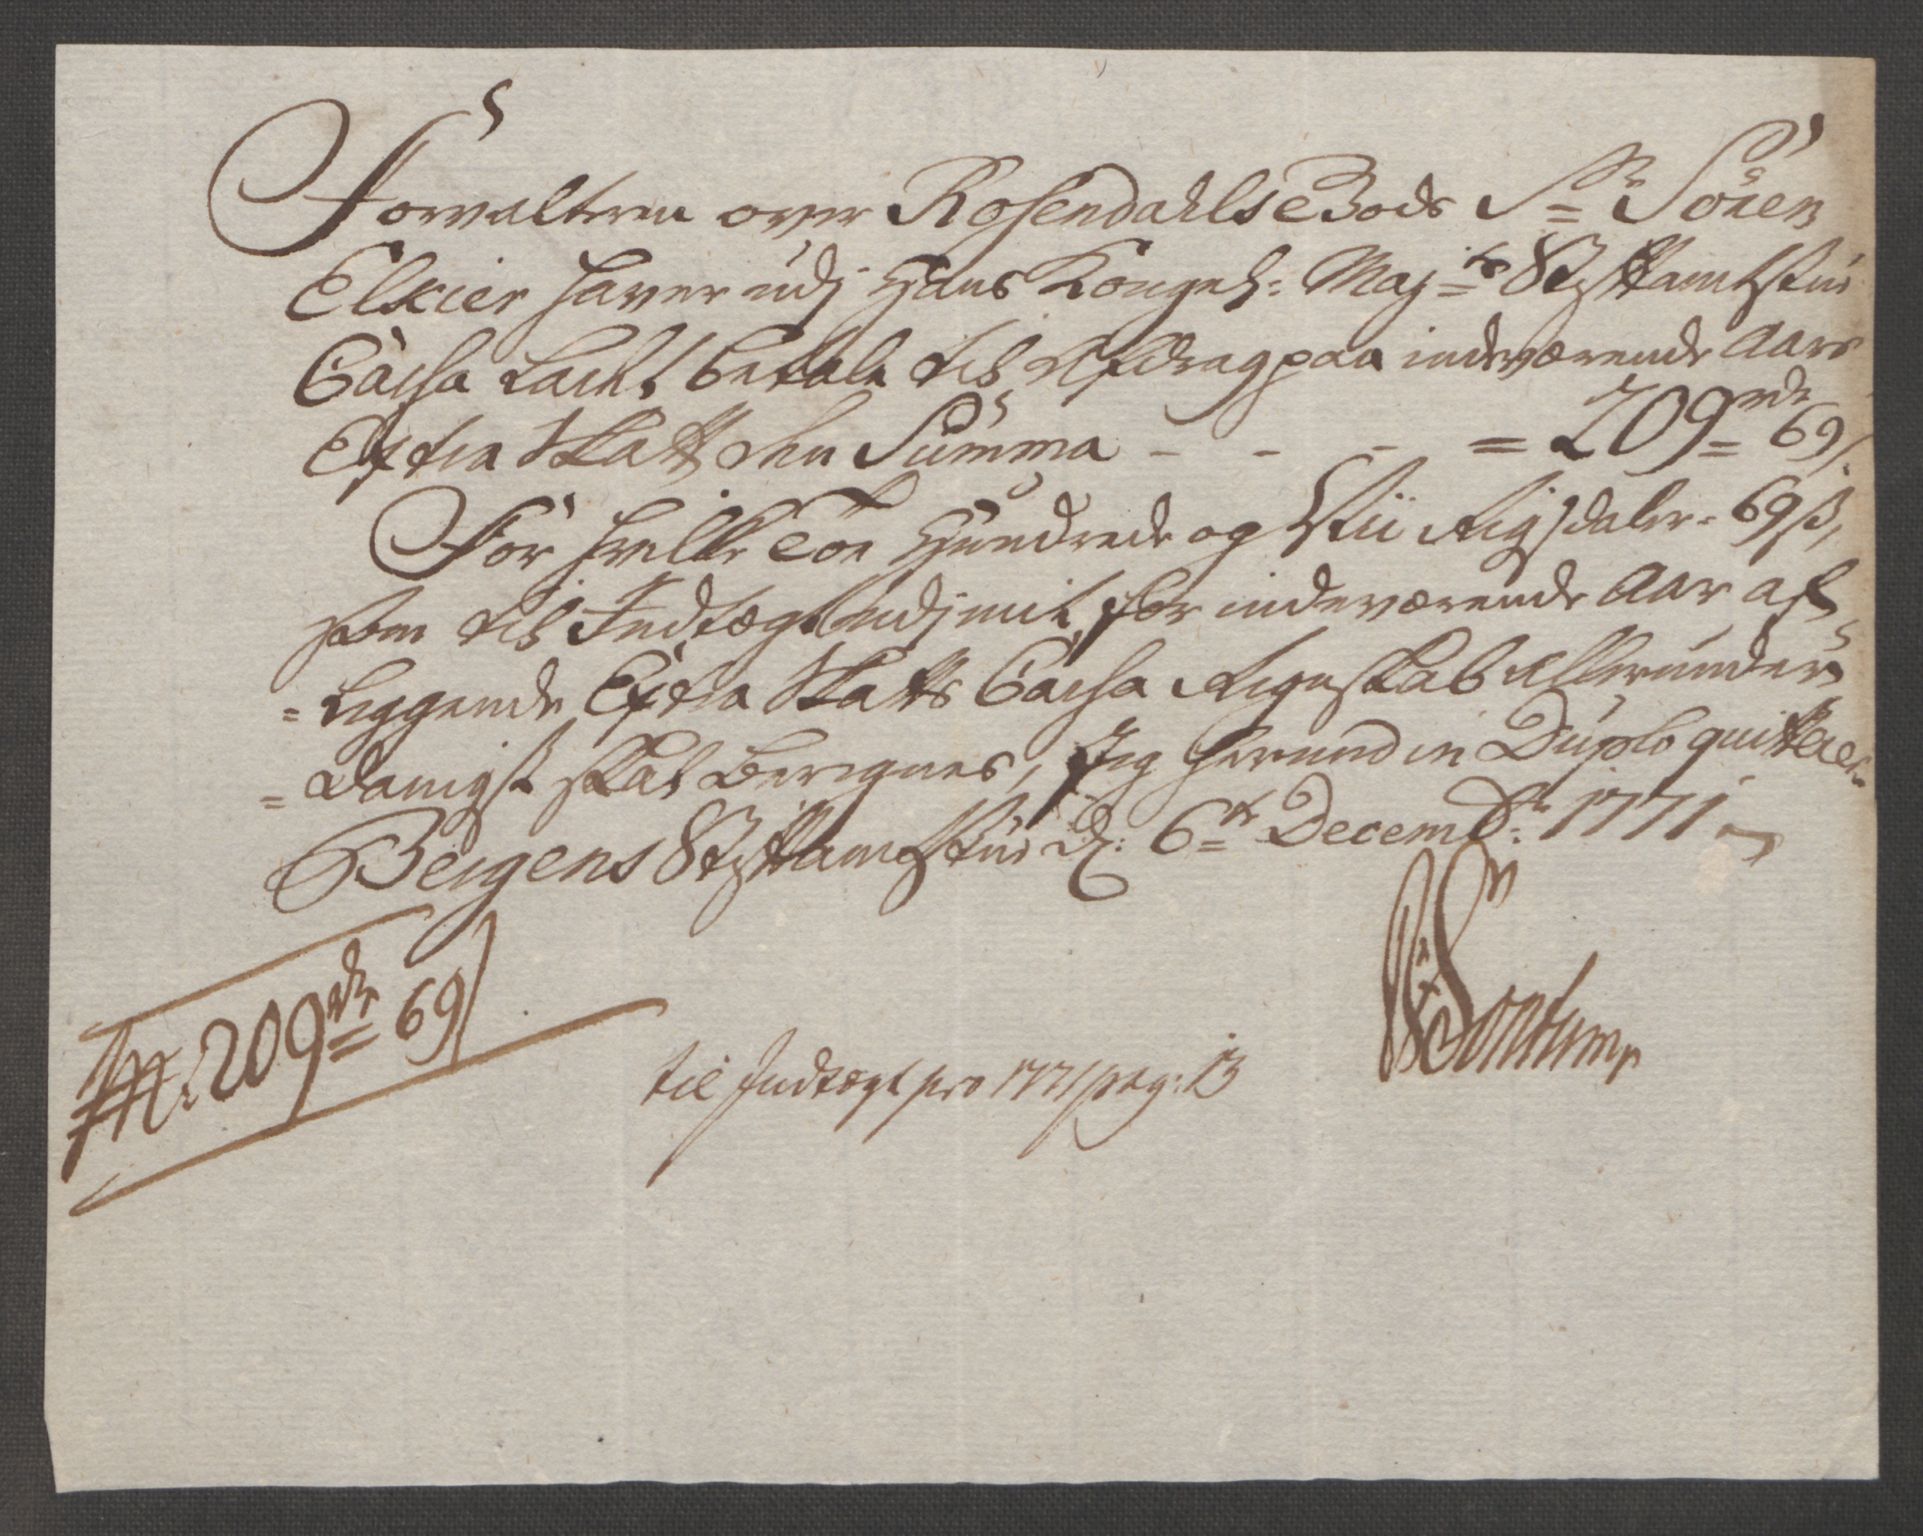 Forvalteren over Rosendahls Gods Sr= Sören
Elkier haver udj Hans Kongel: Maj=ts Stiftamtstue
Cassa ladet betale til Afdrag paa indeværende Aars
Extra Skatt den Summa - - - = 209rd= 69ß
For hvilke Toe Hundrede og Nii Rigsdaler - 69ß,
som til Indtægt udj mit for indeværende Aar af=
=Liggende Extra Skatts Cassa Regnskab Allerunder=
=Danigst skal Beregnes, Jeg herved in Duplo quitterer.
Bergens Stiftamtstue d: 6te= Decembr: 1771
Sontum
209rd= 69ß
til Indtægt pro 1771 pag: 13